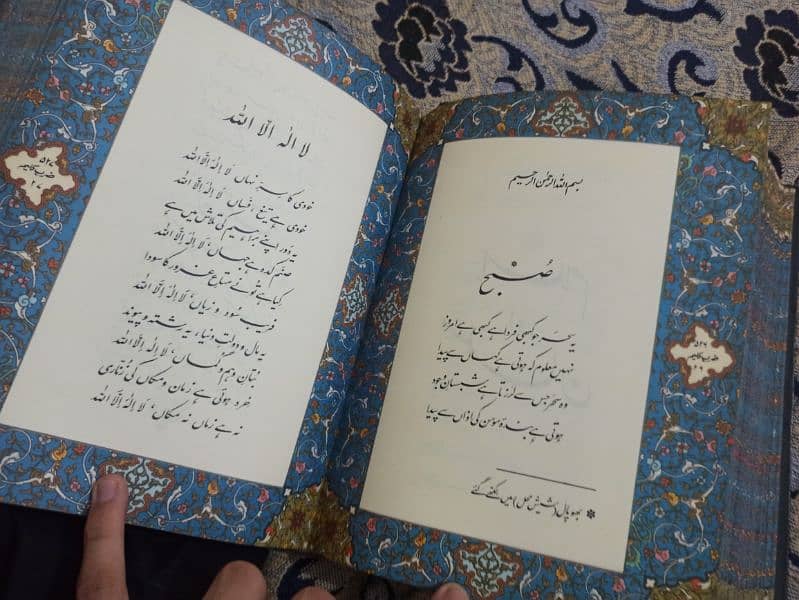 ۵۲۶
ضرب کلیم
بسم اللہ الرحمٰن الرحیم
صُبح*
یہ سحَر جو کبھی فردا ہے کبھی ہے امروز
نہیں معلوم کہ ہوتی ہے کہاں سے پیدا
وہ سحَر جس سے لرزتا ہے شبستانِ وجود
ہوتی ہے بندۂ مومن کی اذاں سے پیدا
* بھوپال (شیش محل) میں لکھے گئے
۵۲۷
ضرب کلیم
۲۷
لا الٰہ الّا اللہ
خودی کا سِرِّ نہاں لَا اِلٰہَ اِلَّا اللہ
خودی ہے تیغ، فساں لَا اِلٰہَ اِلَّا اللہ
یہ دَور اپنے براہیم کی تلاش میں ہے
صنم کدہ ہے جہاں، لَا اِلٰہَ اِلَّا اللہ
کیا ہے تُو نے متاعِ غرور کا سودا
فریبِ سُود و زیاں، لَا اِلٰہَ اِلَّا اللہ
یہ مال و دولتِ دنیا، یہ رشتہ و پیوند
بُتانِ وہم و گُماں، لَا اِلٰہَ اِلَّا اللہ
خرد ہوئی ہے زمان و مکاں کی زُنّاری
نہ ہے زماں نہ مکاں، لَا اِلٰہَ اِلَّا اللہ